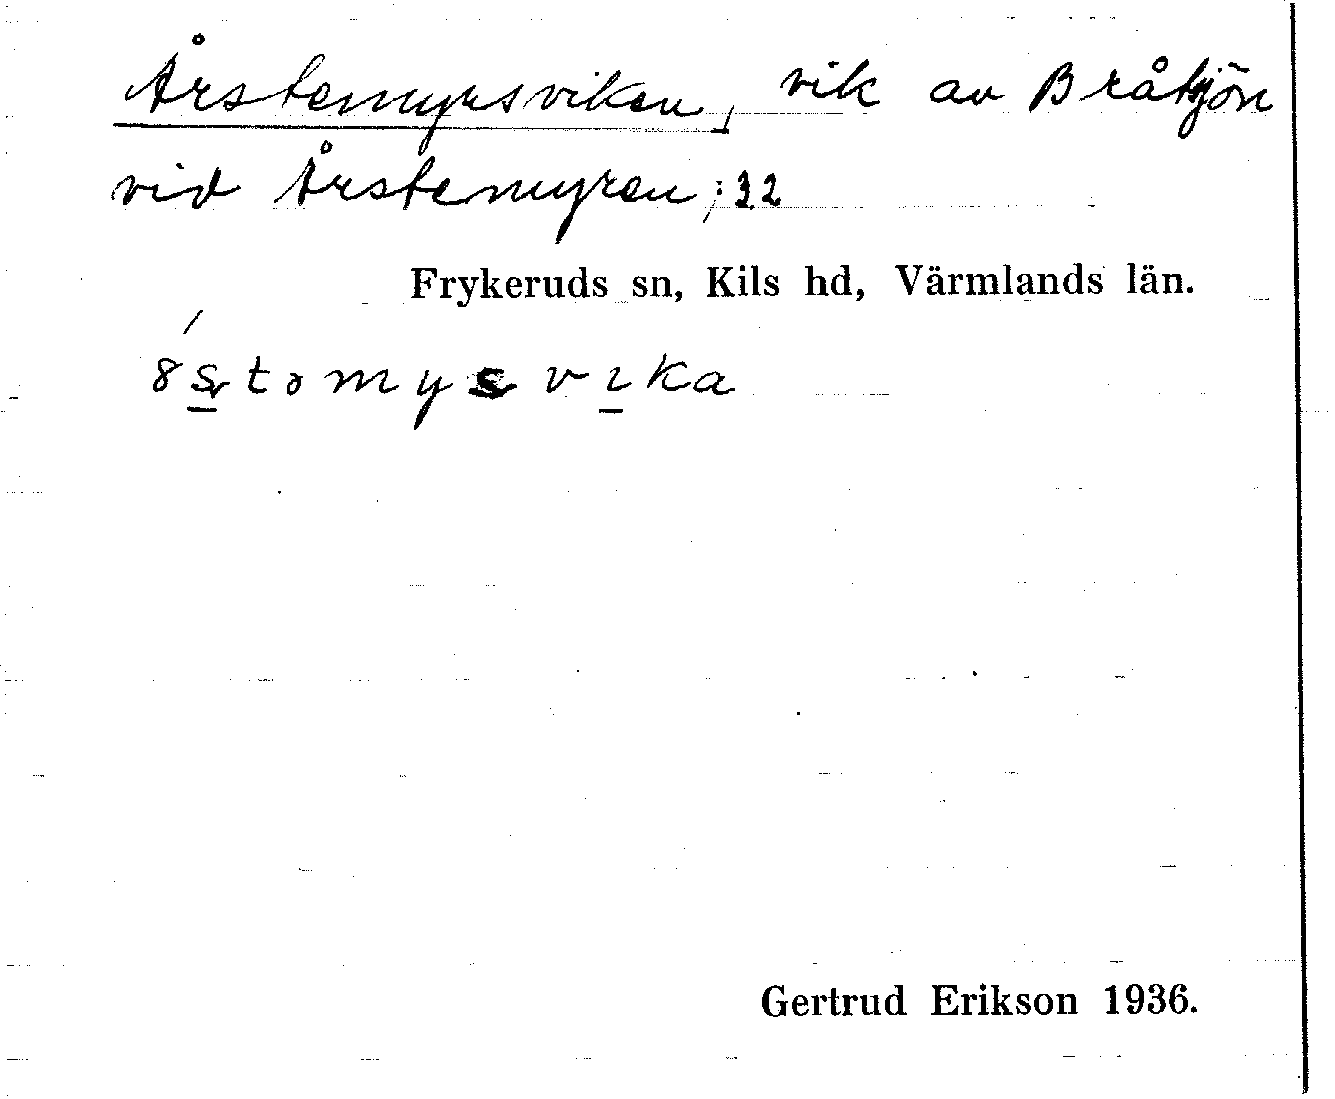 Årstemyrsviken, vik av Bråtjön
vid Årstemyren; 32
Frykeruds sn, Kils hd, Värmlands län.
8stəmysvıka
Gertrud Erikson 1936.